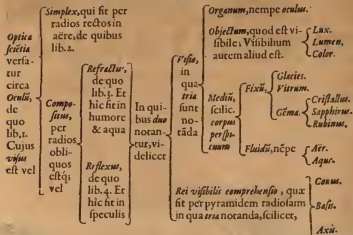 Optica
sciẽtia
versa-
tur
circa
Oculũ,
de
quo
lib.1.
Cujus
visus
est vel
Simplex, qui fit per
radios rectos in
aëre, de quibus
lib.2.
Compo-
situs,
per
radios
obli-
quos
estq́;
vel
Refractus,
de quo
lib.3. Et
hîc fit in
humore
& aqua
Reflexus,
de quo
lib.4. Et
hîc fit in
speculis
In qui-
bus duo
notan-
tur, vi-
delicet
Visio,
in
qua
tria
sunt
no-
tãda
Organum, nempe oculus.
Objectum, quod est vi-
sibile; Visibilium
autem aliud est.
Lux.
Lumen.
Color.
Mediũ,
scilic.
corpus
perspi-
cuum
Fixũ,
Glacies.
Vitrum.
Gẽma.
Cristallus.
Sapphirus.
Rubinus.
Fluidũ, nẽpe
Aër.
Aqua.
Rei visibilis comprehensio, quæ
fit per pyramidem radiosam
in qua tria notanda, scilicet,
Conus.
Basis.
Axis.